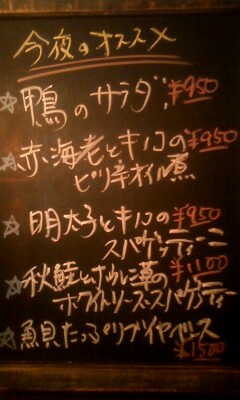 今夜のオススメ
☆鴨のサラダ ¥950
☆赤海老とキノコの ¥950
ピリ辛オイル煮
☆明太子とキノコの ¥950
スパゲッティーニ
☆秋鮭とホウレン草の ¥1100
ホワイトソーススパゲッティー
☆魚貝たっぷりブイヤベース
¥1500